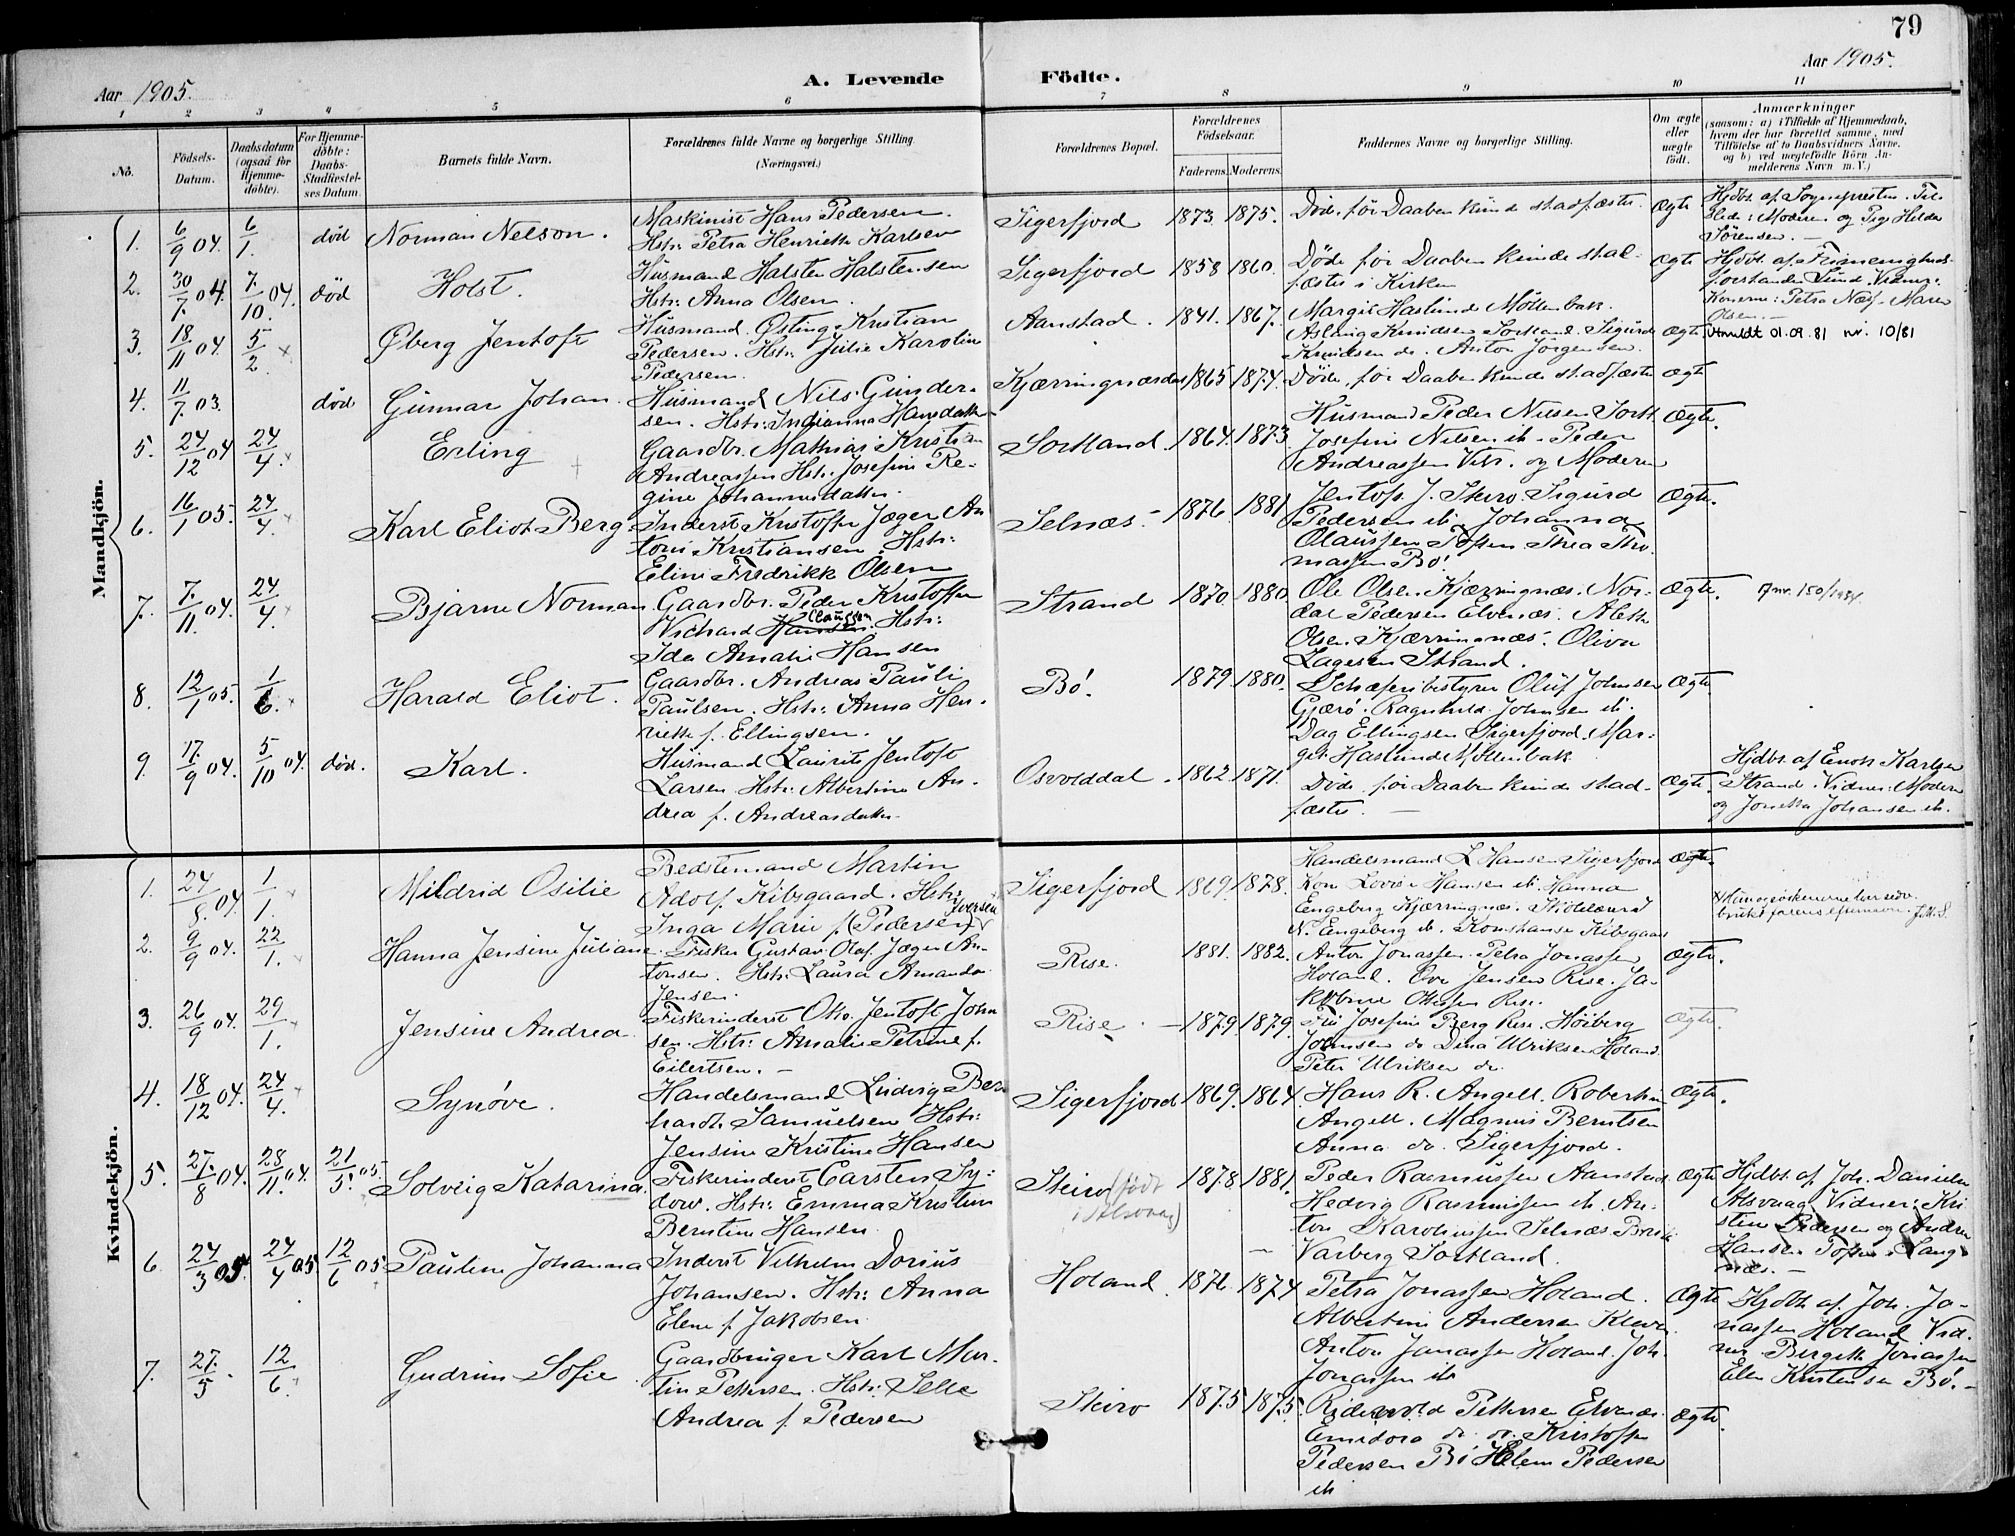 79
Aar 1905.
A. Levende Födte.
Aar 1905.
1 2 3 4 5 6 7 8 9 10 11
No.
Födsels-Datum.
Daabsdatum (ogsaa for Hjemme-döbte).
For Hjemme-döbte: Daabs-Stadfæstel-ses Datum.
Barnets fulde Navn.
Forældrenes fulde Navne og borgerlige Stilling.
(Næringsvei.)
Forældrenes Bopæl.
Forældrenes Födselsaar.
Faderens. Moderens.
Faddernes Navne og borgerlige Stilling.
Om ægte eller uægte födt.
Anmærkninger
(saasom: a) i Tilfælde af Hjemmedaab,
hvem der har forrettet samme, med
Tilföielse af to Daabsvidners Navne,
og b) ved uægtefödte Börn An-
melderens Navn m. V.)
Mandkjön.
1. 6/9 04. 6/1. död Norman Nelson.
Maskinist Hans Pedersen.
Hstr: Petra Henriette Karlsen
Sigerfjord 1873. 1875.
Döde för Daaben kunde stadfæstes. Ægte
Hjdbt af Sognepresten. Til-
stede: Moderen og Pig Helda
Sörensen. —
2. 30/7. 04. 7/10. 04. död Holst.
Husmand Halsten Halstensen
Hstr: Anna Olsen.
Sigerfjord 1858 1860.
Döde för Daaben kunde stad-
fæstes i Kirken
Ægte
Hjdbt. af
forstander Lund. Vidner:
Konerne: Petra Næss Maren
Olsen. —
3. 18/11 04. 5/2. Øberg Jentoft
Husmand Østing Kristian
Pedersen. Hstr: Julie Karoline
Pedersen.
Aanstad. 1841. 1867.
Margit Haslund Möllenbak.
Aslaug Knudsen Sortland. Sigurd
Knudsen do. Anton Jörgensen.
Ægte
Utmeldt 01.09.81 nr. 10/81
4. 11/7 03. död Gunnar Johan.
Husmand Nils Gunder-
sen. Hstr: Indianna Hansdatter
Kjærringnæsdal 1865 1874.
Döde för Daaben kunde stadfæstes Ægte
5. 24/12 04 24/4. Erling
Gaardbr. Mathias Kristian
Andreassen Hstr. Josefine Re-
gine Johannesdatter.
Sortland. 1864. 1873
Husmand Peder Nilsen Sortl.
Josefine Nilsen ib. Peder
Andreassen Vik. og Moderen
Ægte.
6. 16/1 05. 24/4. Karl Eliot Berg.
Inderst Kristoffer Jæger An
toni Kristiansen. Hstr:
Eline Fredrikk Olsen
Selnæs. 1876. 1881
Jentoft J. Steiro. Sigurd
Pedersen ib. Johanna
Olaussen Tofsen. Thea Tho-
massen Bö.
Ægte.
7. 7/11. 04. 24/4. Bjarne Norman
Gaardbr. Peder Kristoffer
Wichard Hansen Claussen. Hstr:
Ida Amalie Hansen
Strand 1870. 1880.
Ole Olsen Kjærringnæs. Nor-
dal Pedersen Elvenæs. Aleth
Olsen Kjærringnæs. Oliva
Lagesen Strand.
Ægte.
8. 12/1 05. 1/6. Harald Eliot.
Gaardbr. Andreas Pauli
Paulsen. Hstr: Anna Hen-
riette f. Ellingsen.
Bö. 1879. 1880.
Schæferibestyrer Oluf Johnsen
Gjærö. Ragnhild Johnsen ib.
Dag Ellingsen Sigerfjord. Mar-
git Haslund Möllenbak
Ægte.
9. 17./9 04. 5/10 04. död. Karl.
Husmand Laurits Jentoft
Larsen Hstr: Albertine An-
drea f. Andreasdatter
Osvolddal. 1862. 1871.
Döde för Daaben kunde stad-
fæstes. —
Ægte.
Hjdbt. af Enok Karlsen
Strand. Vidner: Moderen
og Jonetta Johansen ib.
Kvindekjön.
1. 24/8. 04. 1/1. Mildrid Osilie
Bedstemand Martin
Adolf Kibsgaard. Hstr:
Inga Marie f. (Pedersen) Iversen
Sigerfjord 1869. 1878.
Handelsmand L. Hansen Sigerfjord
Kone Lovise Hansen ib. Hanna
Engeberg Kjærringnæs. Skolelærer
N. Engeberg ib. Konstanse Kibsgaard
Ægte.
2. 9/9 04. 22/1. Hanna Jensine Juliane.
Fisker Gustav Olaf Jæger An-
tonsen. Hstr: Laura Amanda
Jensen.
Rise. 1881. 1882.
Anton Jonassen. Petra Jonassen
Holand. Ove Jensen Rise. Ja-
kobine Ottesen Rise.
Ægte.
3. 26/9 04. 29/1. Jensine Andrea
Fiskerinderst Otto Jentoft John
sen. Hstr: Amalie Petrine f.
Eilertsen. —
Rise. — 1879. 1879.
Fru Josefine Berg Rise. Höiberg
Johnsen do Dina Ulriksen Holand.
Peter Ulriksen do.
Ægte.
4. 18/12 04. 24/4. Synöve.
Handelsmand Ludvig Ber
hardt Samuelsen Hstr:
Jensine Kristine Hansen
Sigerfjord 1869. 1864.
Hans R. Angell. Robertine
Angell. Magnus Berntsen
Anna do. Sigerfjord.
Ægte.
5. 27./8 04. 28/11. 04. 21/5. 05. Solveig Katarina.
Fiskerinderst Carsten Sy-
dow. Hstr: Emma Kristine
Berntine Hansen.
Steiro (födt i Alsvaag) 1878 1881.
Peder Rasmussen Aanstad
Hedvig Rasmussen ib. An-
ton Karolinssen Selnæs.
Varberg Sortland.
Ægte
Hjdbt. af Joh. Danielsen
Alsvaag Vidner: Kri
stine Pedersen og Andrea
Hansen Tofsen i Lang-
næs. —
6. 24/3 05. 24/4 05 12/6 05 Pauline Johanna
Inderst Vilhelm Dorius
Johansen. Hstr: Anna
Elene f. Jakobsen.
Holand. 1876. 1874
Petra Jonassen Holand.
Albertine Andersen Kleiva
Anton Jonassen Holand. Joh.
Jonassen ib
Ægte
Hjdbt. af Joh. Jo-
nassen Holand Vid-
ner Bergette Jonassen
Ellen Kristensen Bö. —
7. 27./5. 12/6. Gudrun Sofie
Gaardbruger Karl Mar-
tin Pettersen. Hstr: Selle
Andrea f. Pedersen
Steiro 1875 1875.
Ridervold Pettersen Elvenæs.
Emidora do. do. Kristoffer
Pedersen Bö Helene Pedersen
ib
Ægte.